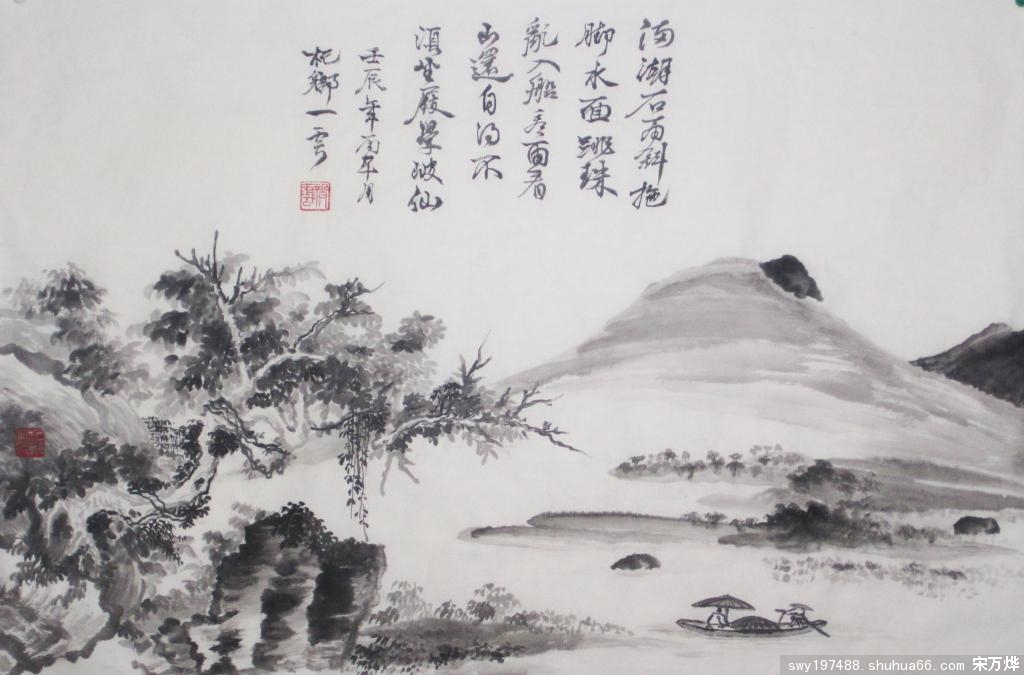 湖石雨斜拖
脚水面跳珠
亂入船面看
山還自得不
須坐履學坡仙
壬辰年丙午月
杞鄉一雲
swy197488. shuhua66. com 宋万烨